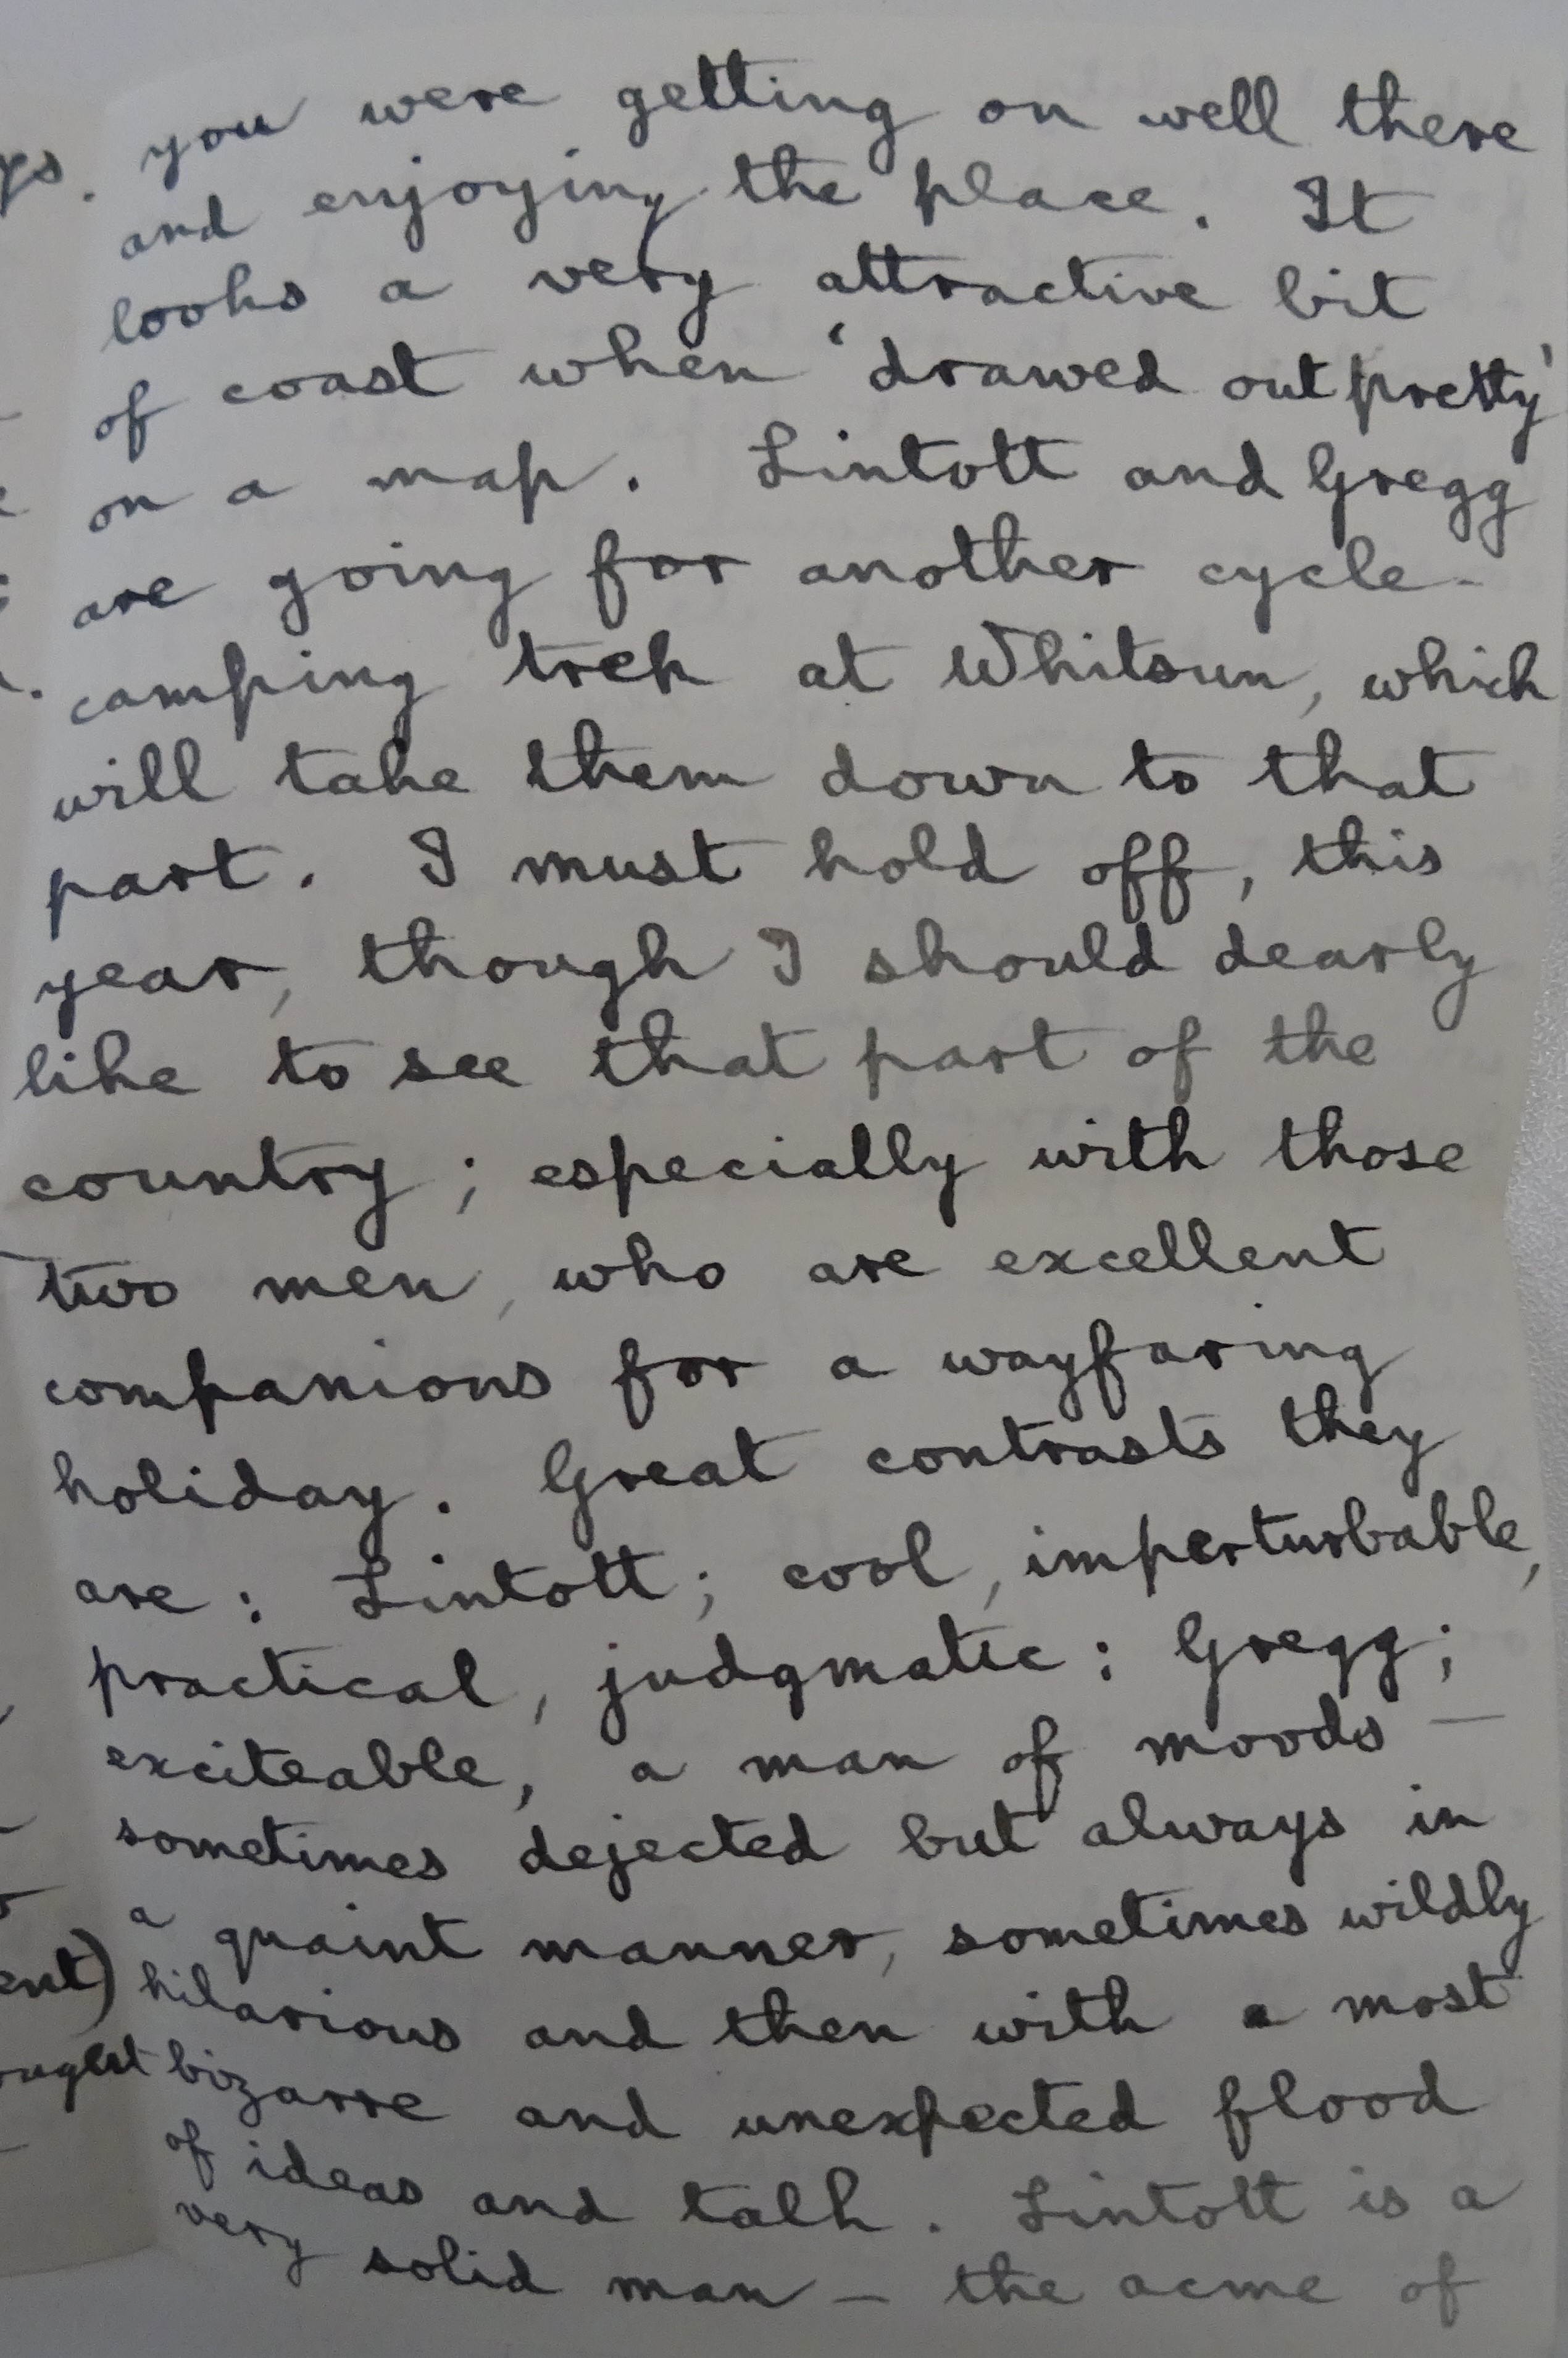 you were getting on well there
and enjoying the place. It
looks a very attractive bit
of coast when 'drawed out pretty'
on a map. Lintott and Gregg
are going for another cycle-
camping trek at Whitsun, which
will take them down to that
part. I must hold off, this
year, though I should dearly
like to see that part of the
country; especially with those
two men, who are excellent
companions for a wayfaring
holiday. Great contrasts they
are: Lintott; cool, imperturbable,
practical, judgmatic: Gregg;
exciteable, a man of moods —
sometimes dejected but always in
a quaint manner, sometimes wildly
hilarious and then with a most
bizarre and unexpected flood
of ideas and talk. Lintott is a
very solid man — the acme of